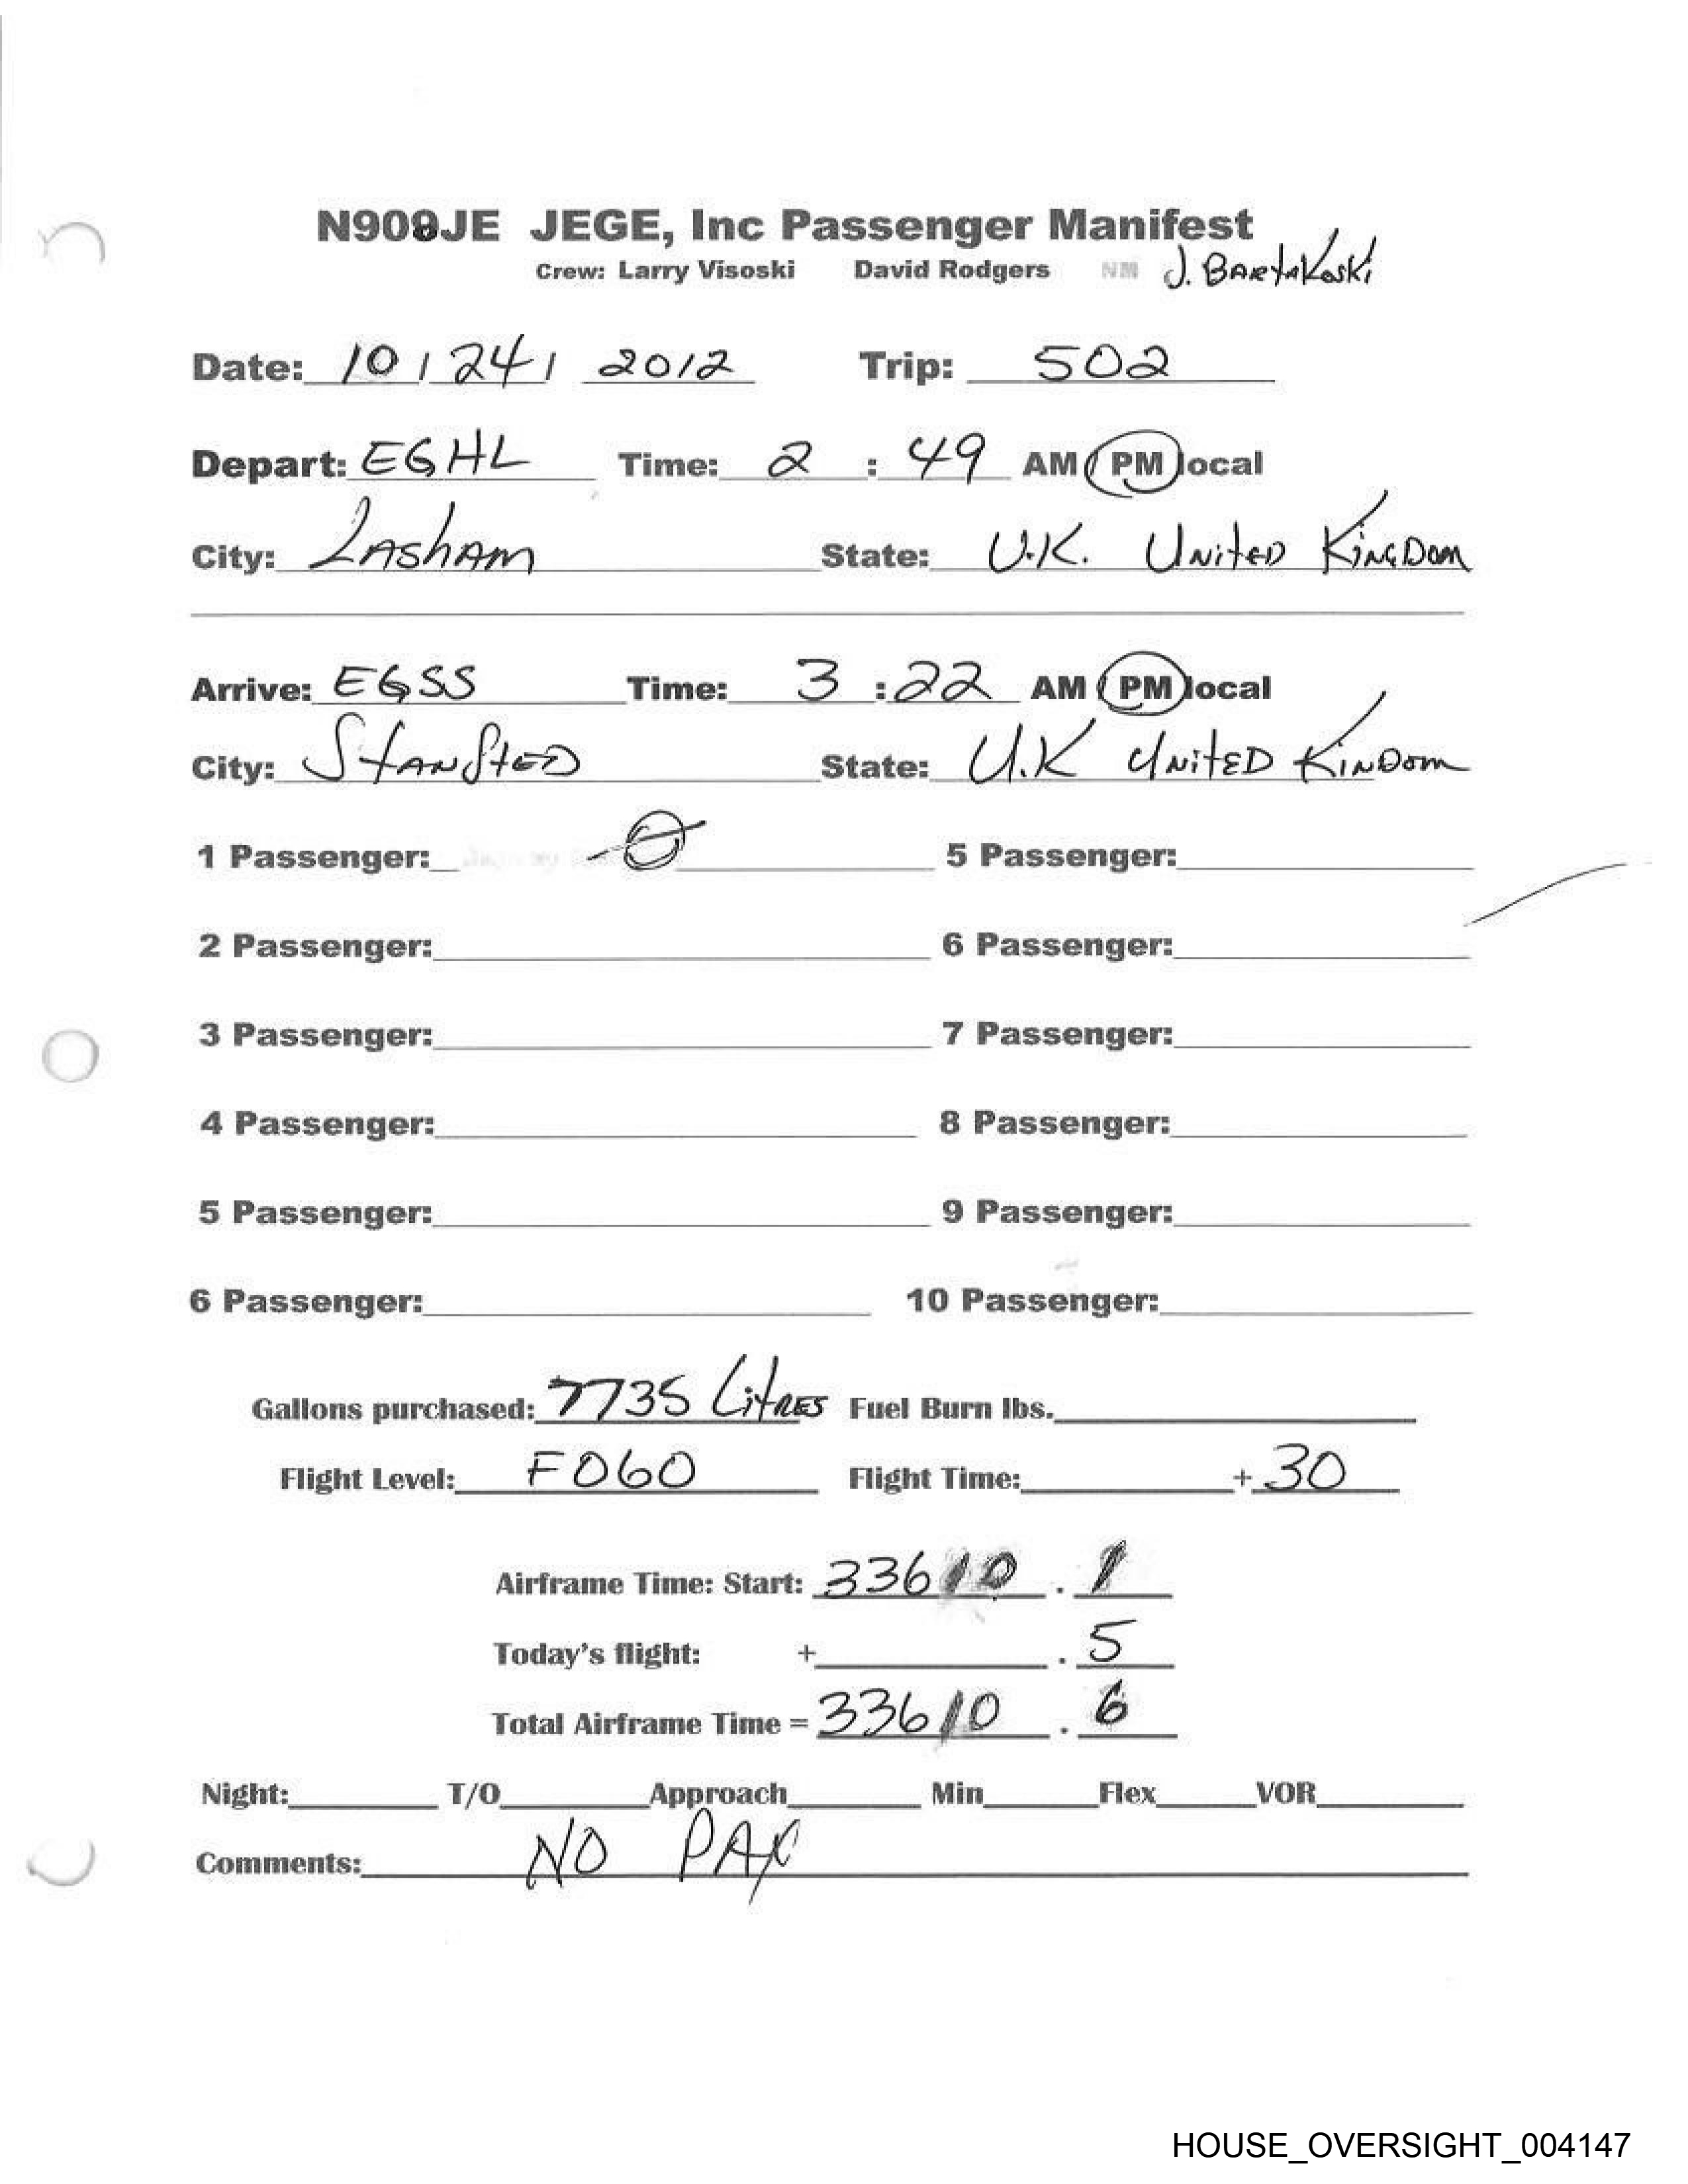 N908JE JEGE, Inc Passenger Manifest
Crew: Larry Visoski David Rodgers NM J. Bartakoski
Date: 10 / 24 / 2012 Trip: 502
Depart: EGHL Time: 2 : 49 AM PM local
City: Lasham State: U.K. United Kingdom
Arrive: EGSS Time: 3 : 22 AM PM local
City: Stansted State: U.K United Kindom
1 Passenger: 0 5 Passenger:
2 Passenger: 6 Passenger:
3 Passenger: 7 Passenger:
4 Passenger: 8 Passenger:
5 Passenger: 9 Passenger:
6 Passenger: 10 Passenger:
Gallons purchased: 7735 Litres Fuel Burn lbs.
Flight Level: F060 Flight Time: + 30
Airframe Time: Start: 33610 . 1
Today's flight: + . 5
Total Airframe Time = 33610 . 6
Night: T/O Approach Min Flex VOR
Comments: NO PAX
HOUSE_OVERSIGHT_004147